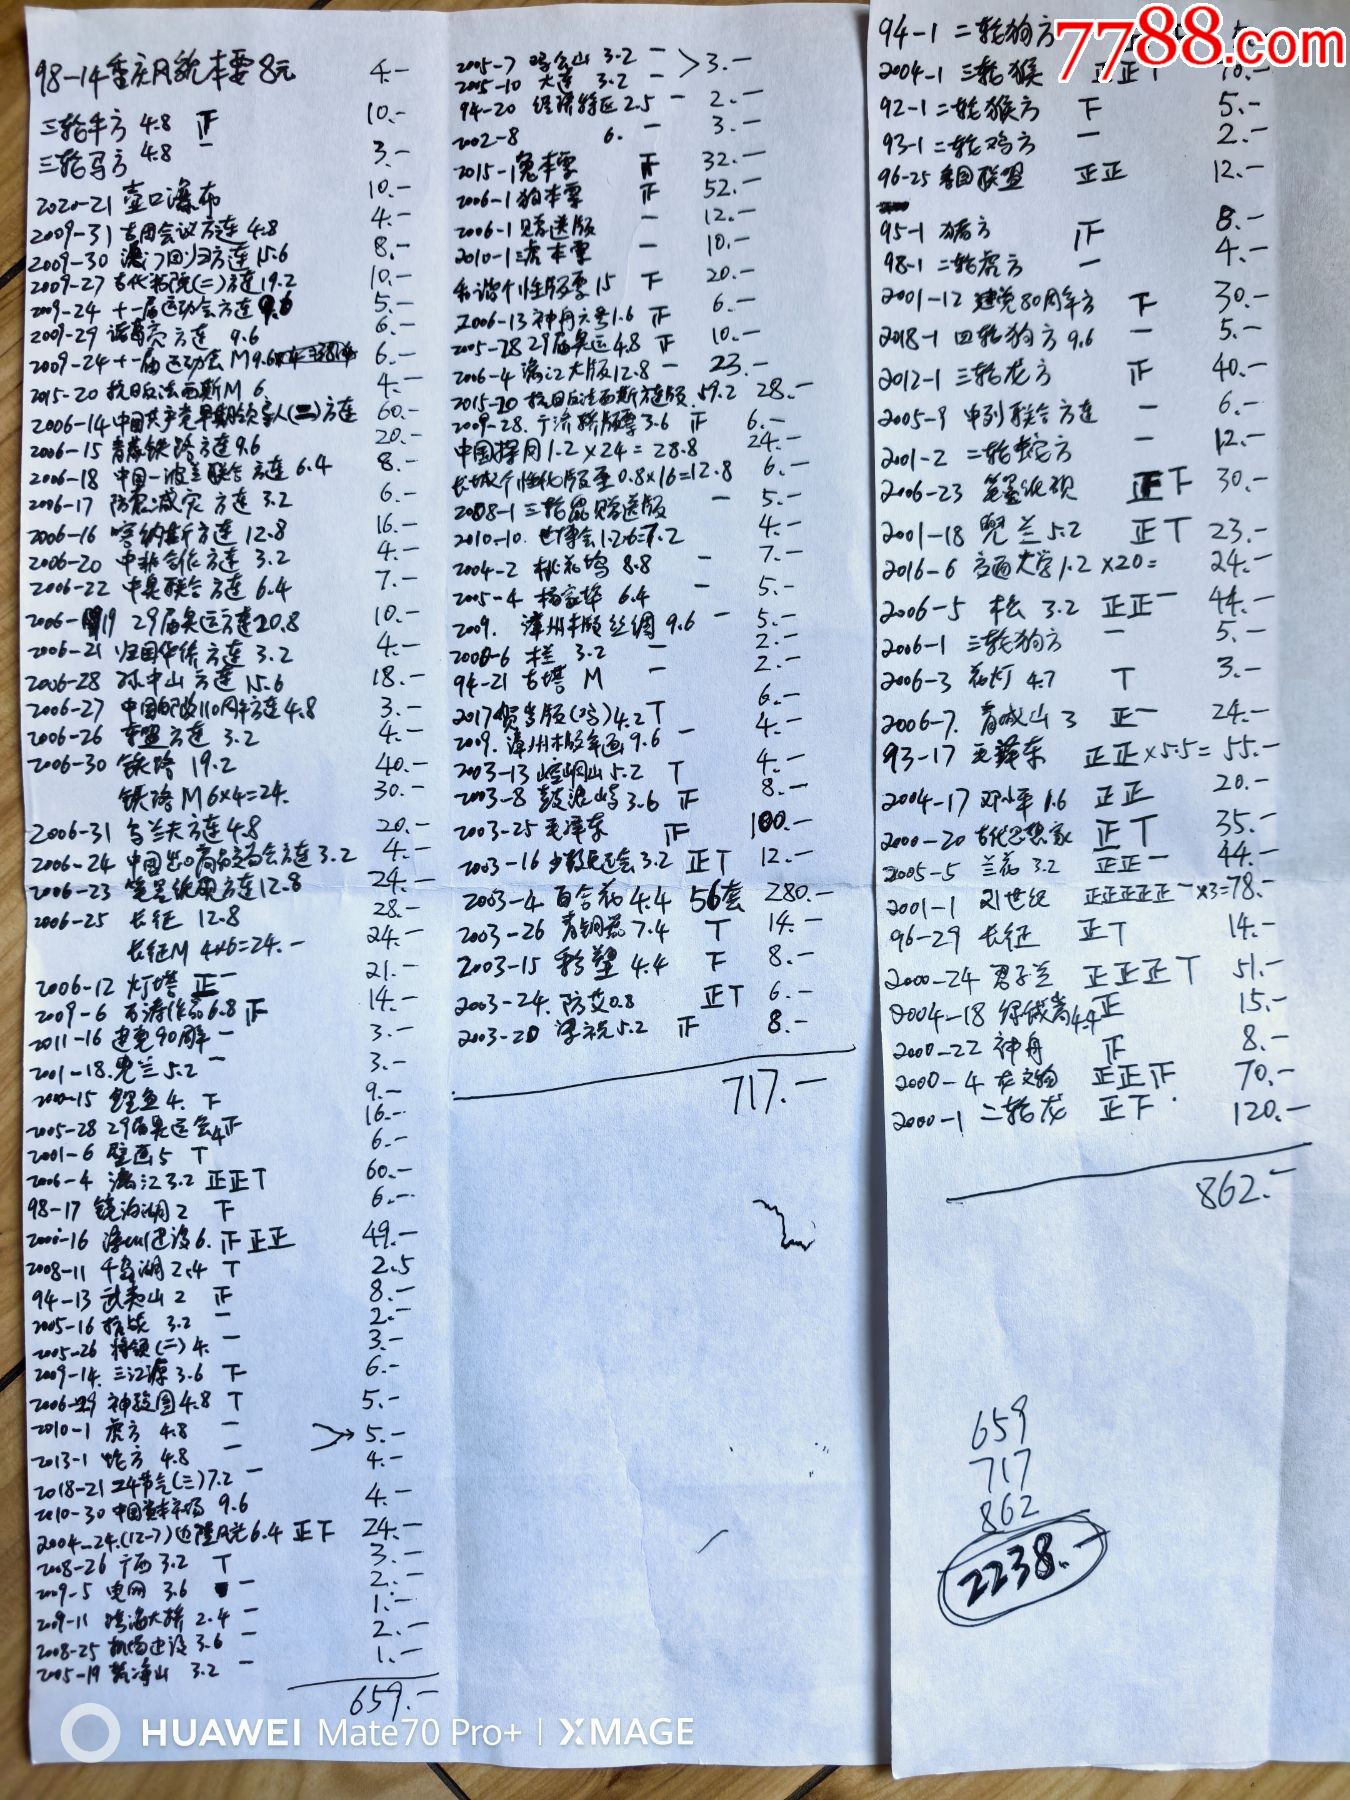 98-14重庆风貌本票8元 4.-
三轮牛方 4.8 正 10.-
三轮马方 4.8 一 3.-
2020-21 壶口瀑布 10.-
2009-31 古田会议方连 4.8 4.-
2009-30 澳门回归方连 15.6 8.-
2009-27 古代书院(二)方连 19.2 10.-
2009-24 十一届运动会方连 9.6 5.-
2009-29 诸葛亮方连 9.6 6.-
2009-24 十一届运动会M9.6 6.-
2015-20 抗日反法西斯M 6 4.-
2006-14 中国共产党早期领导人(二)方连 60.-
2006-15 青藏铁路方连 9.6 20.-
2006-18 中国-波兰联合方连 6.4 8.-
2006-17 防震减灾方连 3.2 6.-
2006-16 喀纳斯方连 12.8 16.-
2006-20 中非合作方连 3.2 4.-
2006-22 中奥联合方连 6.4 7.-
2006-19 29届奥运方连20.8 10.-
2006-21 归国华侨方连 3.2 4.-
2006-28 孙中山方连 15.6 18.-
2006-27 中国邮政110周年方连4.8 3.-
2006-26 东盟方连 3.2 4.-
2006-30 铁路 19.2 40.-
铁路M 6x4=24. 30.-
2006-31 乌兰夫方连4.8 20.-
2006-24 中国出口商品交易会方连 3.2 4.-
2006-23 笔墨纸砚方连12.8 24.-
2006-25 长征 12.8 28.-
长征M 4x6=24.- 24.-
2006-12 灯塔 正一 21.-
2009-6 石涛作品6.8 正 14.-
2011-16 建党90周年 一 3.-
2001-18.兜兰 5.2 一 3.-
2000-15 鲤鱼 4. 下 9.-
2005-28 29届奥运会4 正 16.-
2001-6 壁画5 T 6.-
2006-4 漓江3.2 正正T 60.-
98-17 镜泊湖2 下 6.-
漳州建设6. 正正正 49.-
2008-11 千岛湖2.4 T 2.5
94-13 武夷山 2 正 8.-
2005-16 抗战 3.2 一 2.-
2005-26 将领(二) 4. 一 3.-
2009-14. 三江源 3.6 下 6.-
神骏图4.8 T 5.-
2010-1 虎方 4.8 一
2013-1 蛇方 4.8 一 5.-
2018-21 24节气(三)7.2 一 4.-
2010-30 中国资本市场 9.6 4.-
2004-24.(12-7)边陲风光6.4 正下 24.-
2008-26 广西 3.2 T 3.-
2009-5 电网 3.6 一 2.-
2009-11 跨海大桥 2.4 一 1.-
2008-25 机场建设 3.6 一 2.-
2005-19 梵净山 3.2 一 1.-
659.-
2005-7 鸡公山 3.2 一
2005-10 大连 3.2 一 3.-
94-20 经济特区 2.5 一 2.-
2002-8 6. 一 3.-
2015-1兔本票 正 32.-
2006-1狗本票 正 52.-
2006-1赠送版 一 12.-
2010-1三虎本票 一 10.-
和谐个性版票15 下 20.-
2006-13 神舟六号1.6 正 6.-
2005-28 29届奥运 4.8 正 10.-
2006-4 漓江大版12.8 一 23.-
2015-20 抗日反法西斯方连版 59.2 28.-
2009-28. 广济桥版票3.6 正 6.-
中国探月1.2×24=28.8 24.-
长城个性化版至0.8×16=12.8 6.-
2008-1三轮鼠赠送版 一 5.-
2010-10. 世博会1.2.6=7.2 4.-
2004-2 桃花坞 8.8 一 7.-
2005-4 杨家埠 6.4 一 5.-
2009. 漳州木版丝绸 9.6 一 5.-
2000-6 木兰 3.2 一 2.-
94-21 古塔 M 2.-
2017贺岁版(鸡)4.2 T 6.-
2009. 漳州木版年画9.6 一 4.-
2003-13 崆峒山 5.2 T 4.-
2003-8 鼓浪屿 3.6 正 8.-
2003-25 毛泽东 正 100.-
2003-16 少数民运会 3.2 正T 12.-
2003-4 百合花 4.4 56套 280.-
2003-26 青铜器 7.4 T 14.-
2003-15 彩塑 4.4 下 8.-
2003-24. 防艾0.8 正T 6.-
2003-20 梁祝5.2 正 8.-
717.-
7788.com
94-1 二轮狗方
2004-1 三轮猴 正正T 70.-
92-1 二轮猴方 下 5.-
93-1 二轮鸡方 一 2.-
96-25 各国联盟 正正 12.-
95-1 猪方 正 8.-
98-1 二轮虎方 一 4.-
2001-12 建党80周年方 下 30.-
2018-1 四轮狗方 9.6 一 5.-
2012-1 三轮龙方 正 40.-
2005-9 中列联合方连 一 6.-
2001-2 二轮蛇方 一 12.-
2006-23 笔墨纸砚 正下 30.-
2001-18 兜兰5.2 正T 23.-
2016-6 交通大学1.2 ×20= 24.-
2006-5 木松 3.2 正正一 44.-
2006-1 三轮狗方 一 5.-
2006-3 花灯 4.7 T 3.-
2006-7. 青城山 3 正一 24.-
93-17 毛泽东 正正×5.5= 55.-
2004-17 邓小平 1.6 正正 20.-
2000-20 古代思想家 正T 35.-
2005-5 兰花 3.2 正正一 44.-
2001-1 21世纪 正正正正正一×3= 78.-
96-29 长征 正T 14.-
2000-24 君子兰 正正正T 51.-
2004-18 绿绒蒿4.4 正 15.-
2000-22 神舟 正 8.-
2000-4 龙文物 正正正 70.-
2000-1 二轮龙 正下 120.-
862.-
659
717
862
2238.-
HUAWEI Mate70 Pro+ | XMAGE